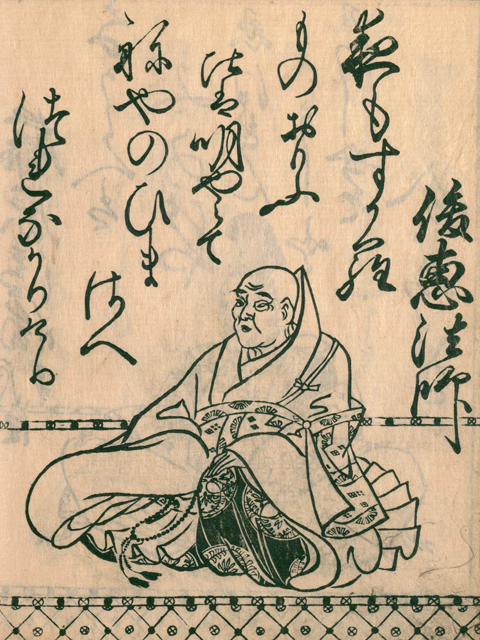 俊惠法師
夜もすから
ものおもふ
比は明やらて
ねやのひま
さへ
つれなかりけり